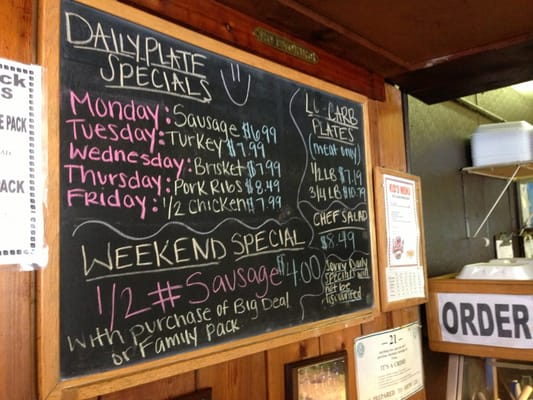 Daily Plate
Specials
Monday: Sausage $6.99
Tuesday: Turkey $7.99
Wednesday: Brisket $7.99
Thursday: Pork Ribs $8.49
Friday: 1/2 Chicken $7.99
Weekend Special
1/2 # Sausage $4.00
with purchase of Big Deal
or Family Pack
Lo-Carb
Plates
(meat only)
1/2 LB $7.19
3/4 LB $10.79
Chef Salad
$8.49
Sorry Daily
Specials will
not be
discounted
PACK
PACK
KIDS MENU
21
IT'S A CRIME
ORDER